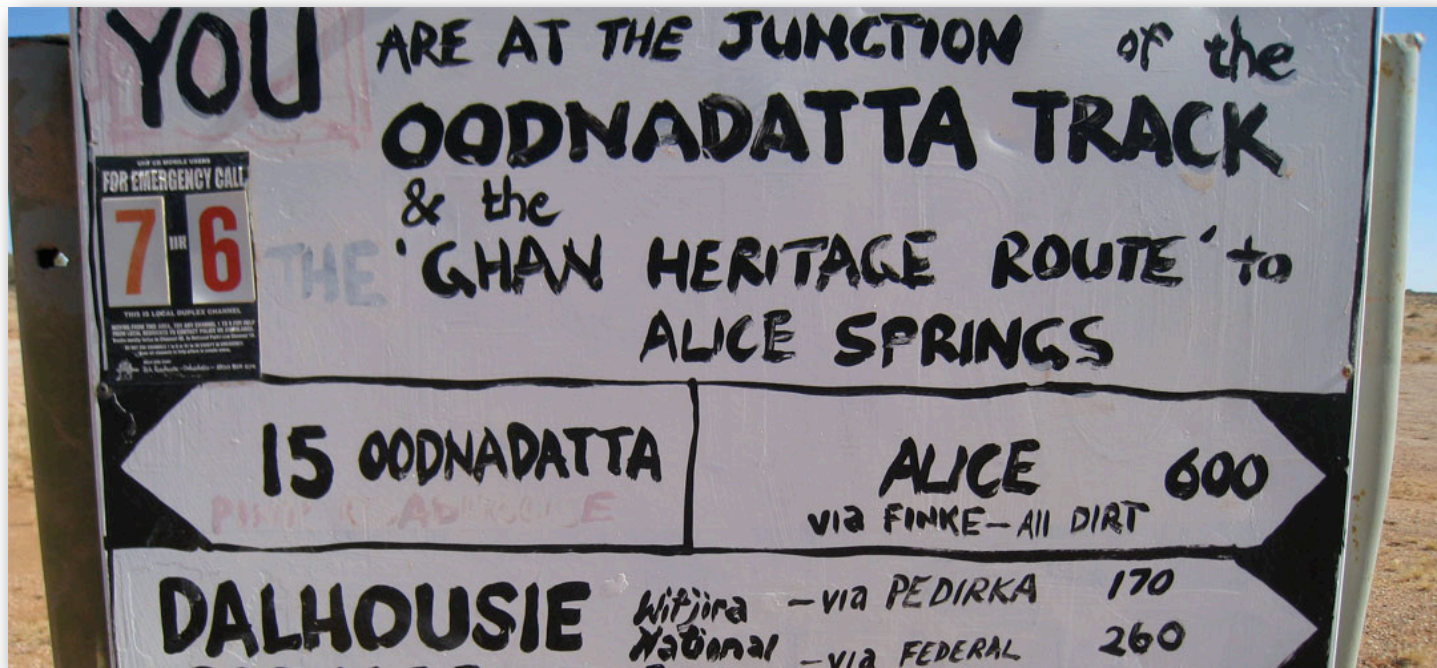 YOU ARE AT THE JUNCTION of the
OODNADATTA TRACK
& the
THE 'GHAN HERITAGE ROUTE' to
ALICE SPRINGS
UHF CB MOBILE USERS
FOR EMERGENCY CALL
7 OR 6
THIS IS LOCAL DUPLEX CHANNEL
15 OODNADATTA
PINK ROADHOUSE
ALICE 600
via FINKE - All DIRT
DALHOUSIE Witjira - via PEDIRKA 170
National - via FEDERAL 260